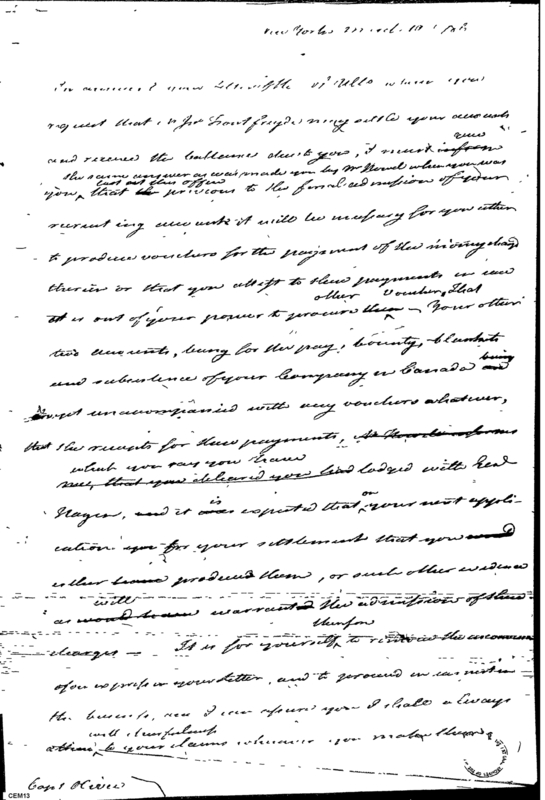 New York March 10
In answer to your Letter of the 8th Ullo wherein you
request that Mr Jno may settle your accounts
and receive the ballance due to you, I must give
the same answer as was made you by Mr Howel when you was
last at this office
you, that previous to the final admission of your
recruiting account it will be necessary for you either
to produce vouchers for the payment of the money charged
therein or that you attest to these payments in case
other Voucher, That
it is out of your power to procure them — Your other
two accounts, being for the pay, bounty, blankets
and subsistence of your Company in Canada and being
unaccompanied with any vouchers whatever,
that the receipts for these payments,
what you say you have
me, that you declared you had lodged with Genl
Hazen, and it was is expected that on your next appli-
cation for your settlement that you would
either have produced them, or such other evidence
will
as would have warranted the admission of these
charges — It is for yourself therefore to remove the
of in your letter, and to proceed in earnest in
the business, and I can assure you I shall always
will cheerfully
attend to your claims whenever you make them
Capt Olivie
CEM13